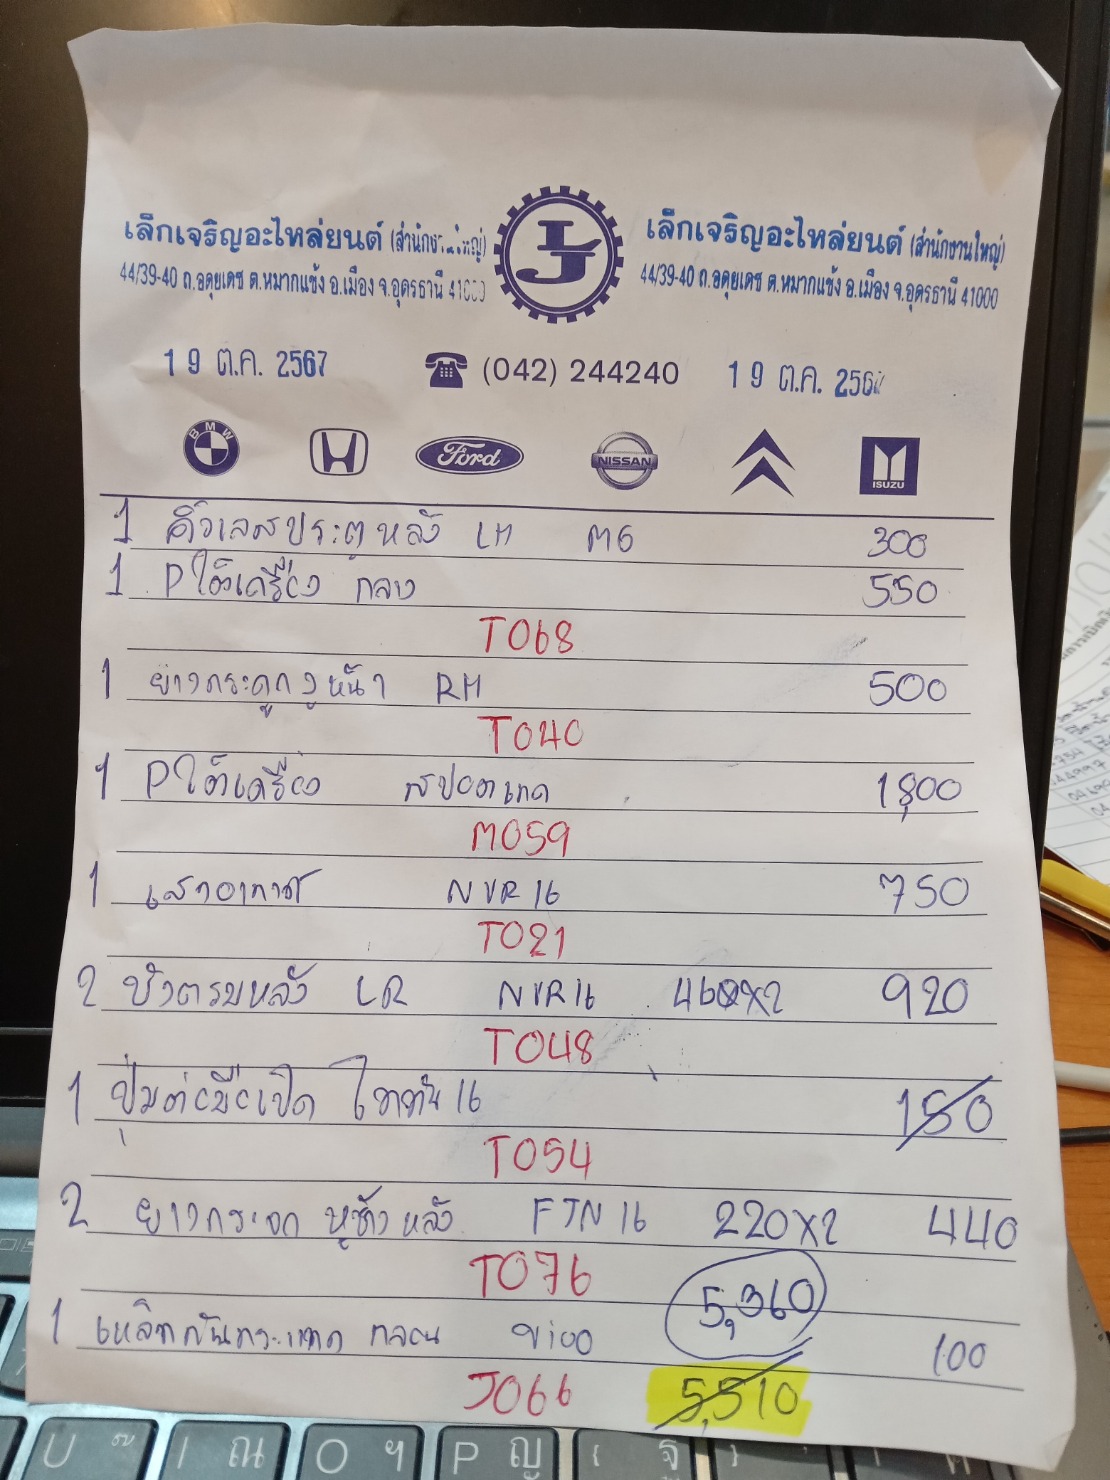 เล็กเจริญอะไหล่ยนต์ (สำนักงานใหญ่) LJ เล็กเจริญอะไหล่ยนต์ (สำนักงานใหญ่)
44/39-40 ถ.อดุยเดช ต.หมากแข้ง อ.เมือง จ.อุดรธานี 41000 44/39-40 ถ.อดุยเดช ต.หมากแข้ง อ.เมือง จ.อุดรธานี 41000
19 ต.ค. 2567 (042) 244240 19 ต.ค. 256
BMW Ford NISSAN ISUZU
1 คิ้วเลสประตูหลัง LH 300
1 Pใต้เครื่อง กลาง 550
T068
1 ยางกระดูกงูหน้า RH 500
T040
1 Pใต้เครื่อง 1,800
M059
1 เสาอากาศ NVR16 750
T021
2 บังตรมหลัง LR NVR16 460x2 920
T048
1 ปุ่มต่อมือเปิด 16 150
T054
2 ยางกระจก หูช้าง หลัง FTN16 220x2 440
T076 5,360
1 เหล็กกันกระแทก กลอน vioo 100
J066 5,510